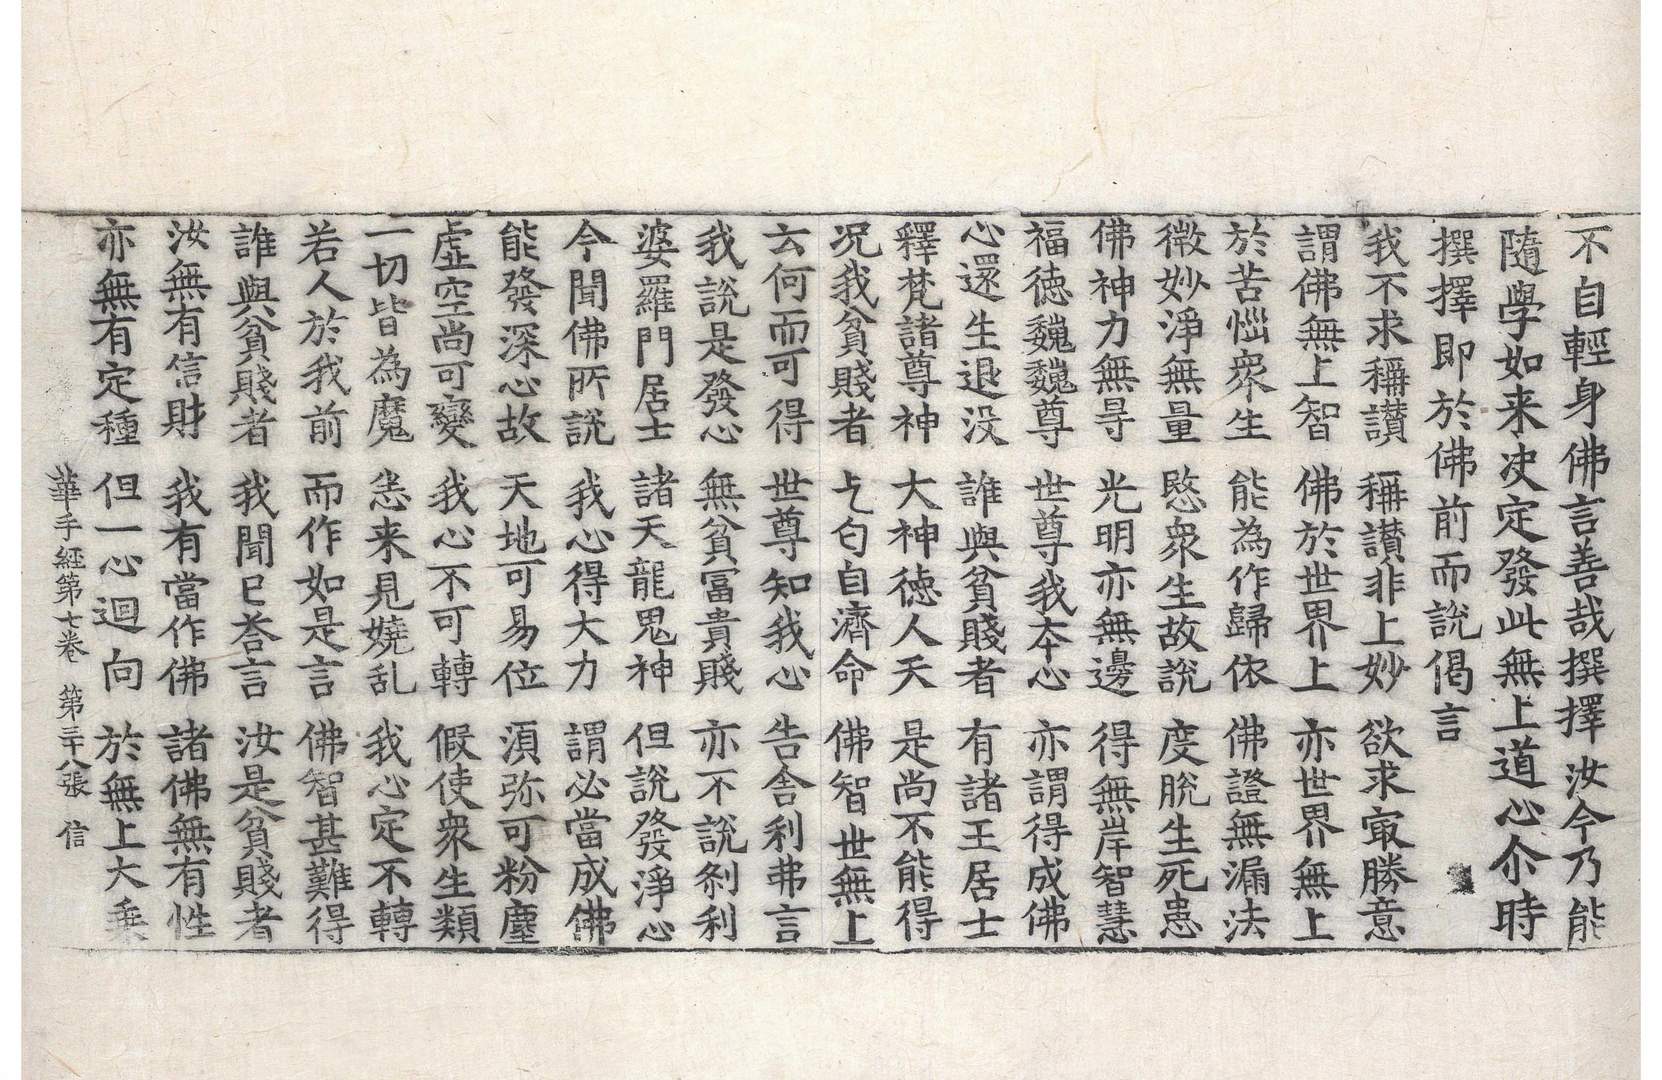 不自輕身佛言善哉撰擇汝今乃能
隨學如来决定發此無上道心尒時
撰擇即於佛前而說偈言
我不求稱讃　稱讃非上妙　欲求冣勝意
謂佛無上智　佛於世界上　亦世界無上
於苦惱衆生　能為作歸依　佛證無漏法
微妙淨無量　愍衆生故說　度脫生死患
佛神力無㝵　光明亦無邊　得無岸智慧
福德巍巍尊　世尊我本心　亦謂得成佛
心還生退没　誰與貧賤者　有諸王居士
釋梵諸尊神　大神德人天　是尚不能得
况我貧賤者　乞匂自濟命　佛智世無上
云何而可得　世尊知我心　告舍利弗言
我說是發心　無貧冨貴賤　亦不說刹利
婆羅門居士　諸天龍鬼神　但說發淨心
今聞佛所說　我心得大力　謂必當成佛
能發深心故　天地可易位　須弥可粉塵
虛空尚可變　我心不可轉　假使衆生類
一切皆為魔　恙来見嬈乱　我心定不轉
若人於我前　而作如是言　佛智甚難得
誰與貧賤者　我聞已荅言　汝是貧賤者
汝無有信財　我有當作佛　諸佛無有性
亦無有定種　但一心迴向　於無上大乗
華手經第七卷　第三十八張　信